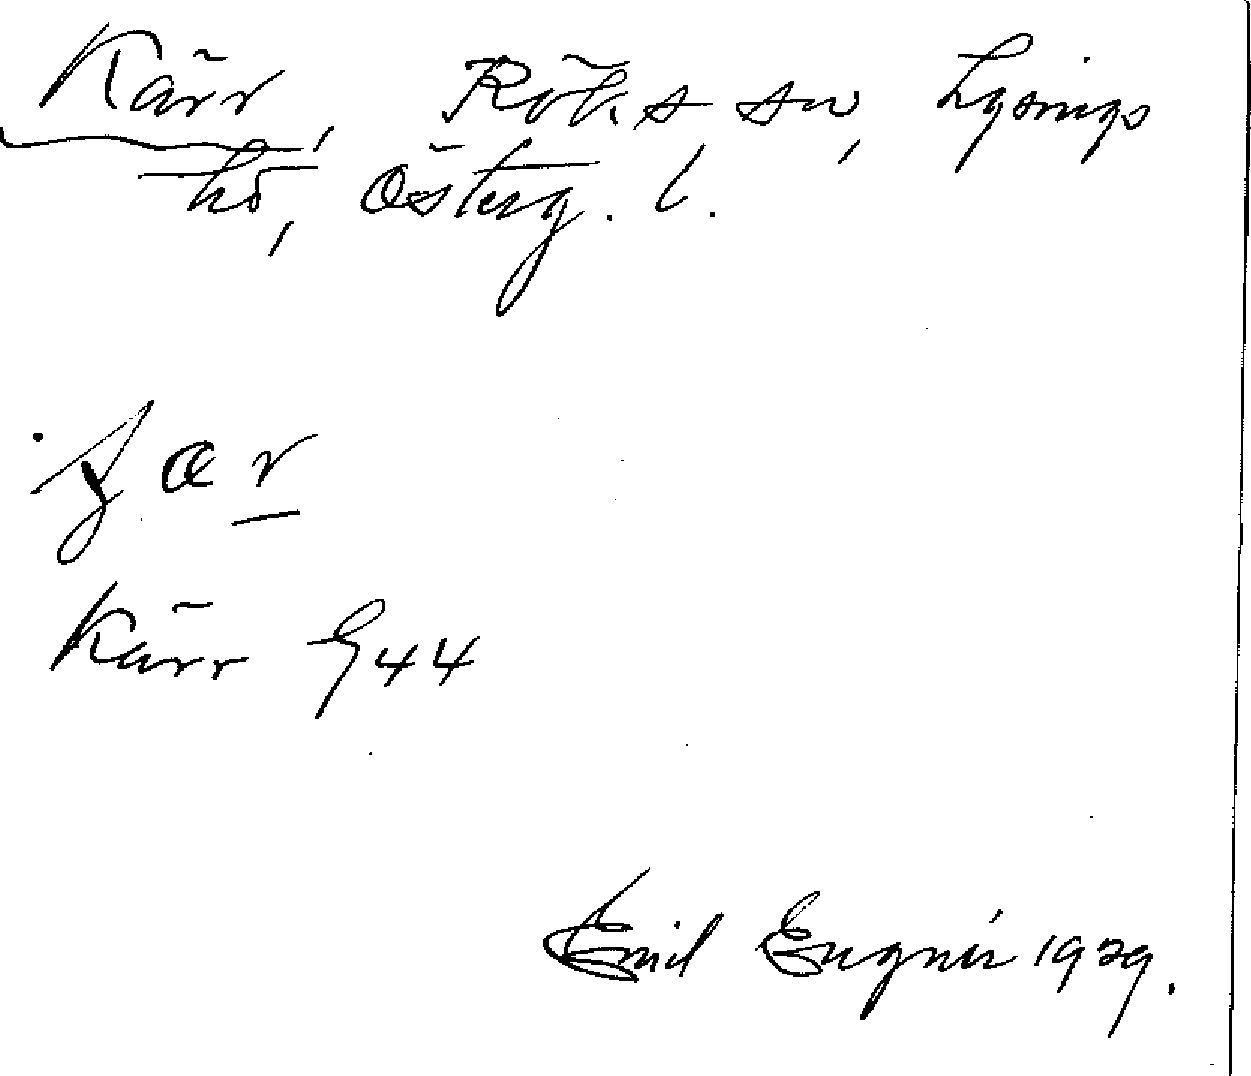 Kärr, Röks sn, Lysings
hd, Österg. l.
Kärr G44
Emil Eugnér 1929.